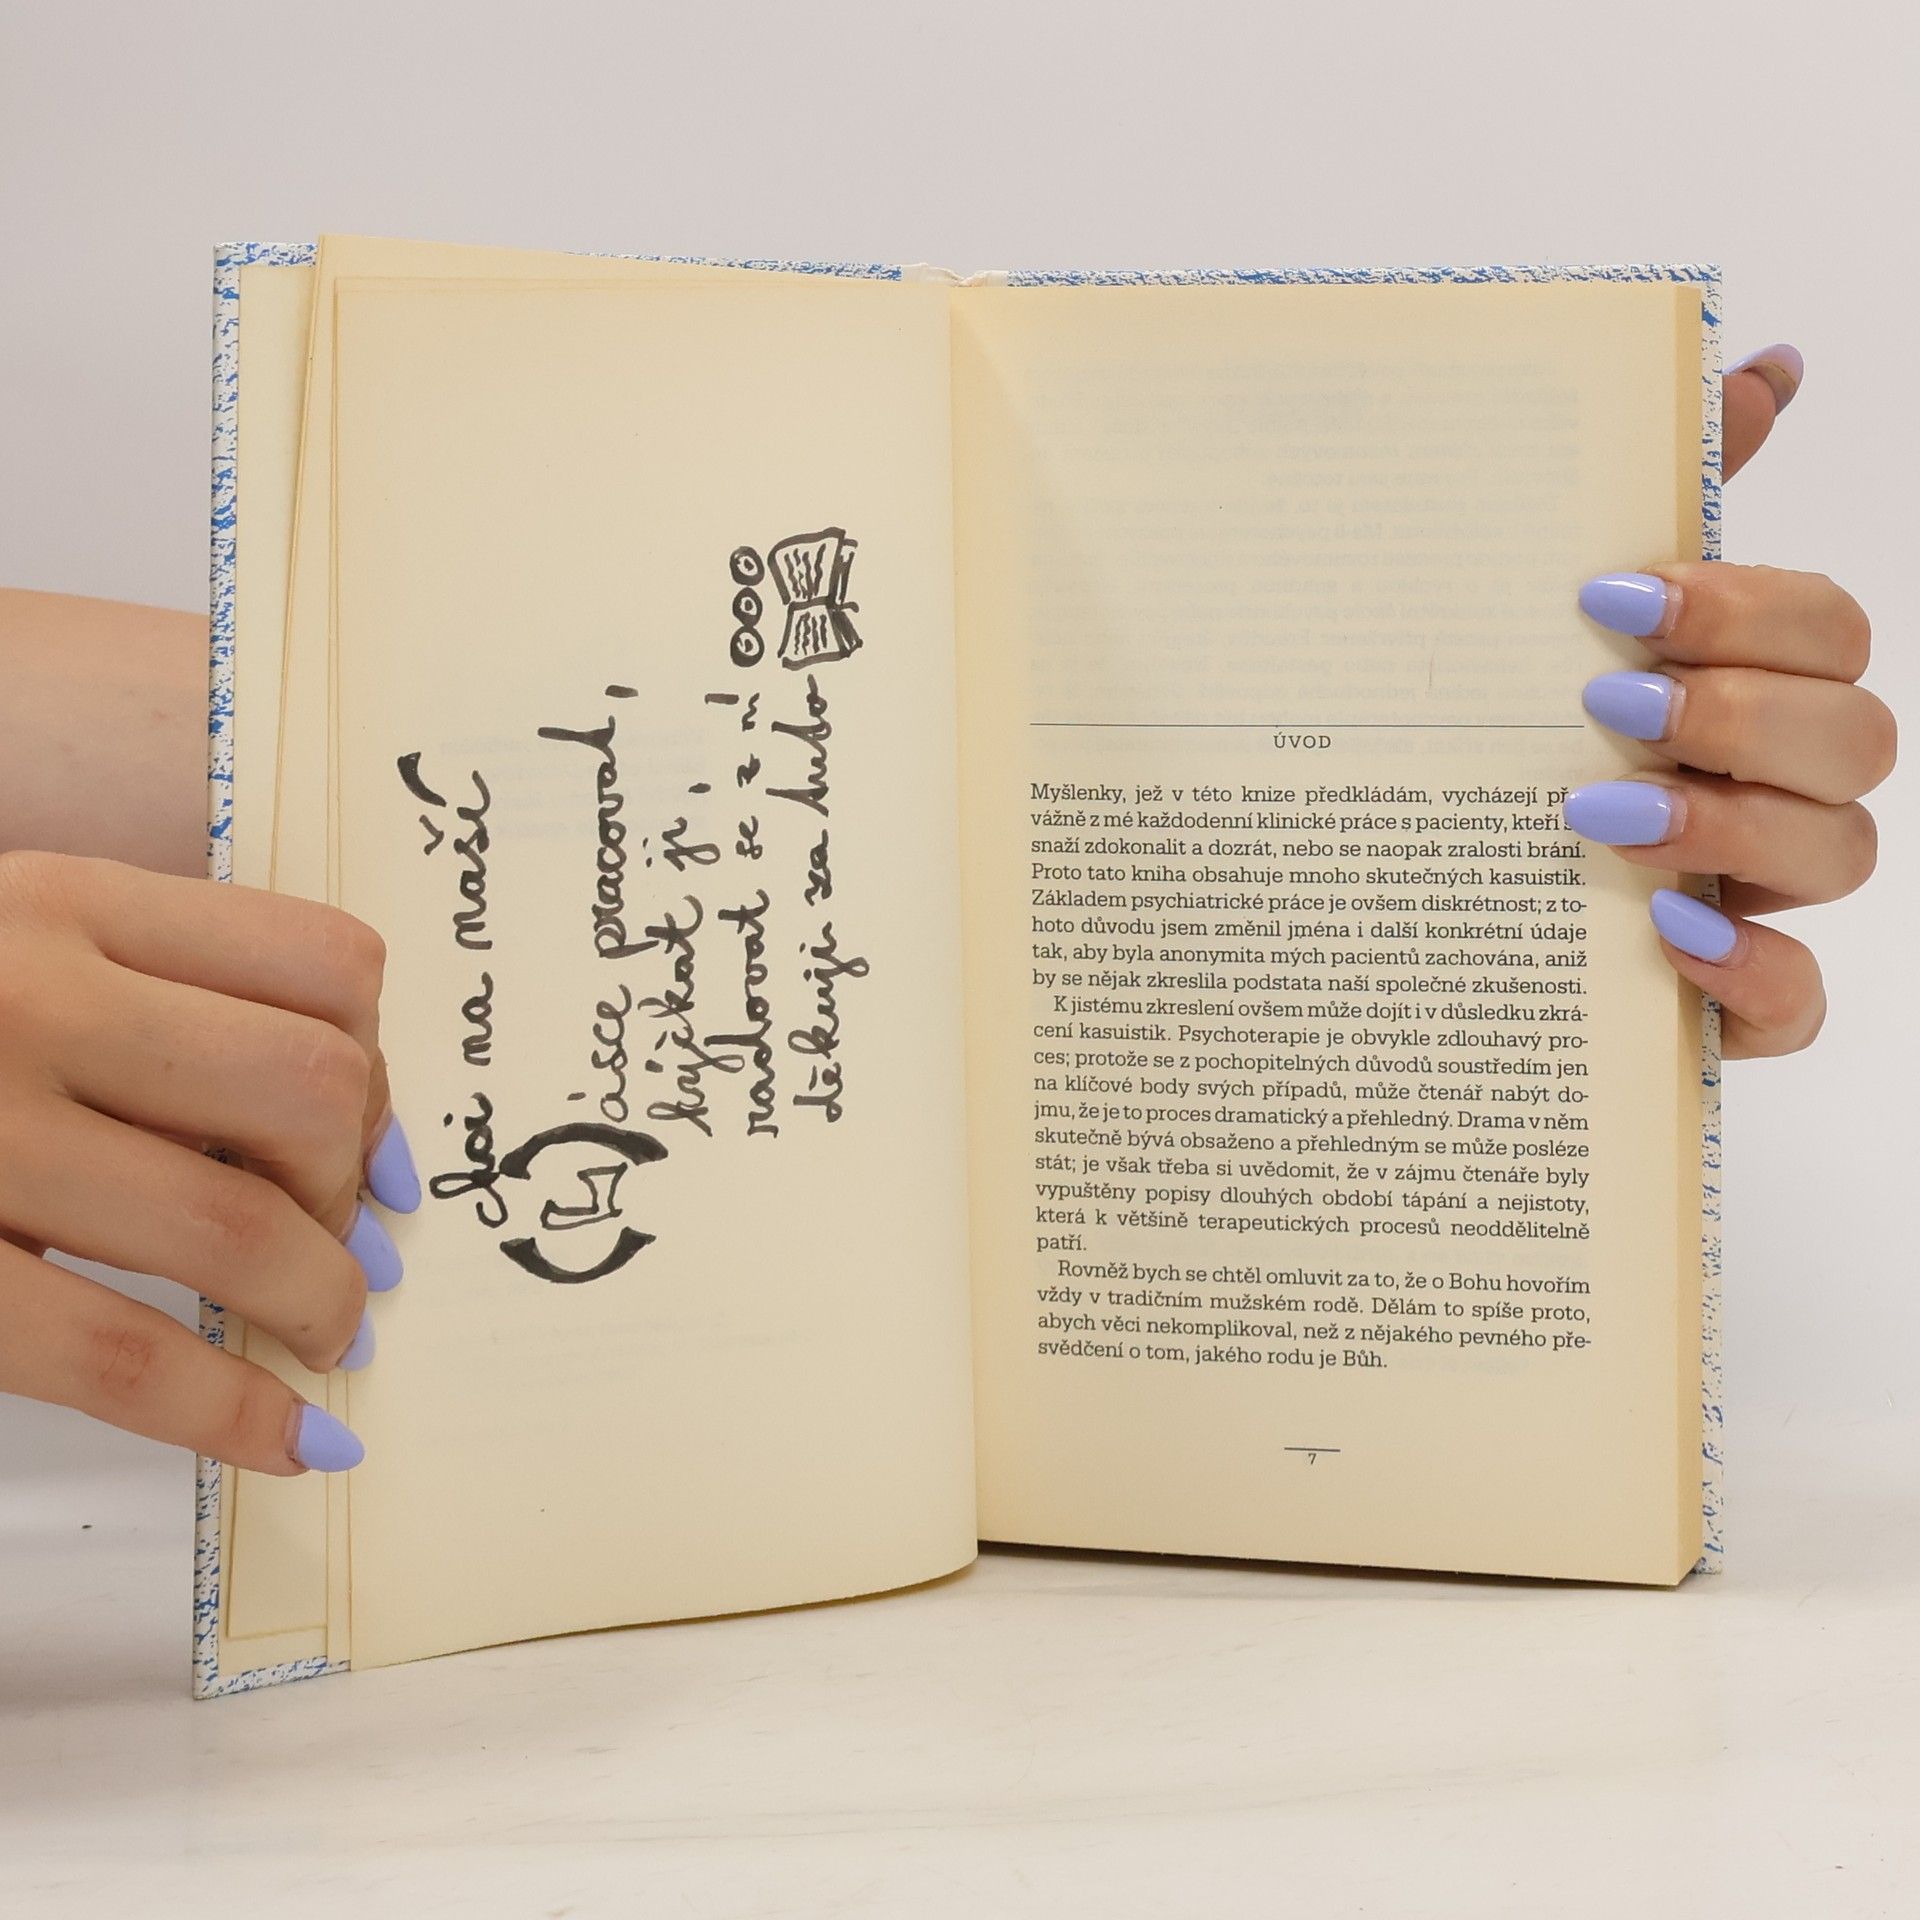 chci na naší
lásce pracovat,
hýčkat ji,
radovat se z ní
děkuji za tuto
ÚVOD
Myšlenky, jež v této knize předkládám, vycházejí
vážně z mé každodenní klinické práce s pacienty, kteří
snaží zdokonalit a dozrát, nebo se naopak zralosti brání.
Proto tato kniha obsahuje mnoho skutečných kasuistik.
Základem psychiatrické práce je ovšem diskrétnost; z to-
hoto důvodu jsem změnil jména i další konkrétní údaje
tak, aby byla anonymita mých pacientů zachována, aniž
by se nějak zkreslila podstata naší společné zkušenosti.
K jistému zkreslení ovšem může dojít i v důsledku zkrá-
cení kasuistik. Psychoterapie je obvykle zdlouhavý pro-
ces; protože se z pochopitelných důvodů soustředím jen
na klíčové body svých případů, může čtenář nabýt do-
jmu, že je to proces dramatický a přehledný. Drama v něm
skutečně bývá obsaženo a přehledným se může posléze
stát; je však třeba si uvědomit, že v zájmu čtenáře byly
vypuštěny popisy dlouhých období tápání a nejistoty,
která k většině terapeutických procesů neoddělitelně
patří.
Rovněž bych se chtěl omluvit za to, že o Bohu hovořím
vždy v tradičním mužském rodě. Dělám to spíše proto,
abych věci nekomplikoval, než z nějakého pevného pře-
svědčení o tom, jakého rodu je Bůh.
7